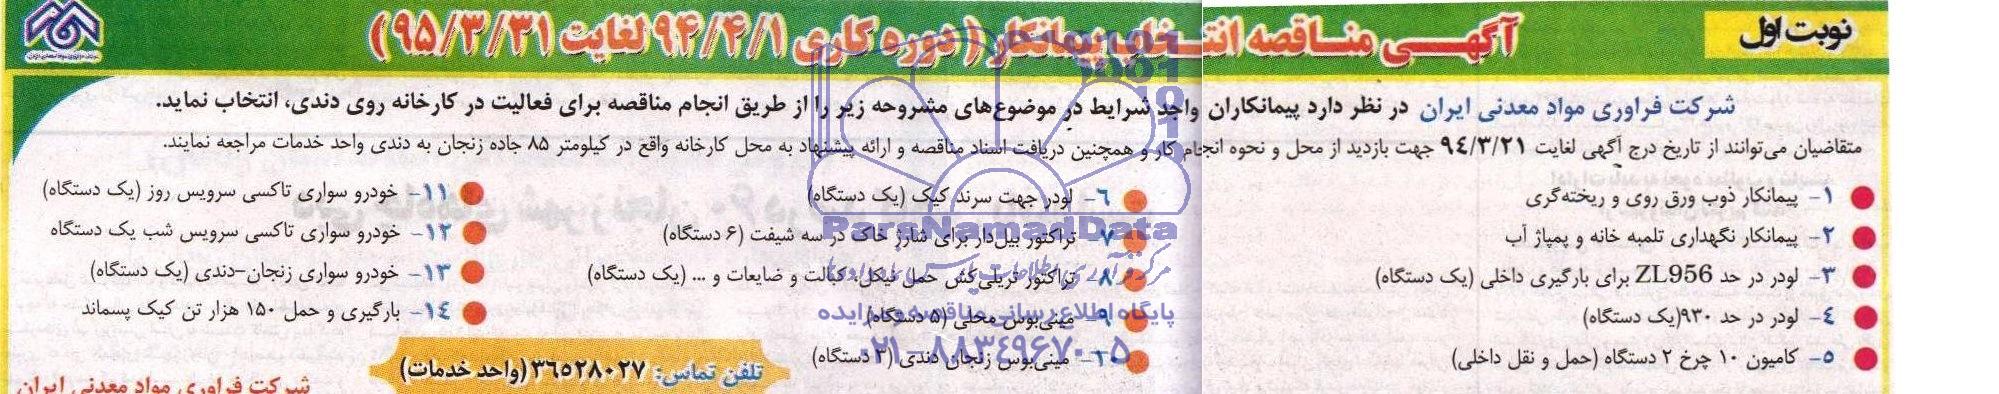 نوبت اول
آگهی مناقصه انتخاب پیمانکار (دوره کاری ۹۴/۴/۱ لغایت ۹۵/۳/۳۱)
شرکت فراوری مواد معدنی ایران در نظر دارد پیمانکاران واجد شرایط در موضوع‌های مشروحه زیر را از طریق انجام مناقصه برای فعالیت در کارخانه روی دندی، انتخاب نماید.
متقاضیان می‌توانند از تاریخ درج آگهی لغایت ۹۴/۳/۲۱ جهت بازدید از محل و نحوه انجام کار و همچنین دریافت اسناد مناقصه و ارائه پیشنهاد به محل کارخانه واقع در کیلومتر ۸۵ جاده زنجان به دندی واحد خدمات مراجعه نمایند.
۱- پیمانکار ذوب ورق روی و ریخته‌گری
۲- پیمانکار نگهداری تلمبه خانه و پمپاژ آب
۳- لودر در حد ZL956 برای بارگیری داخلی (یک دستگاه)
۴- لودر در حد ۹۳۰(یک دستگاه)
۵- کامیون ۱۰ چرخ ۲ دستگاه (حمل و نقل داخلی)
۶- لودر جهت سرند کیک (یک دستگاه)
۷- تراکتور بیل‌دار برای شارژ خاک در سه شیفت (۶ دستگاه)
۸- تراکتور تریلی‌کش حمل نیکل، کبالت و ضایعات و ... (یک دستگاه)
۹- مینی‌بوس محلی (۵ دستگاه)
۱۰- مینی‌بوس زنجان دندی (۲ دستگاه)
۱۱- خودرو سواری تاکسی سرویس روز (یک دستگاه)
۱۲- خودرو سواری تاکسی سرویس شب یک دستگاه
۱۳- خودرو سواری زنجان-دندی (یک دستگاه)
۱۴- بارگیری و حمل ۱۵۰ هزار تن کیک پسماند
تلفن تماس: ۳۶۵۲۸۰۲۷ (واحد خدمات)
شرکت فراوری مواد معدنی ایران
ParaNamadData
پایگاه اطلاع رسانی مناقصه و مزایده
۰۲۱-۸۸۳۴۹۶۷۰-۵